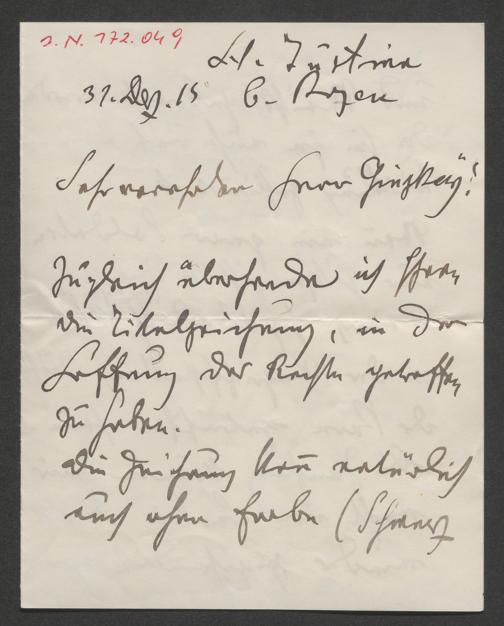 I.N. 172.049
St. Justina
31. Dez. 15 b. Bozen
Sehr verehrter Herr Ginzkey!
Zugleich übersende ich Ihnen
die Titelzeichnung, in der
Hoffnung das Rechte getroffen
zu haben.
Die Zeichnung kann natürlich
auch ohne Farbe (Schwarz